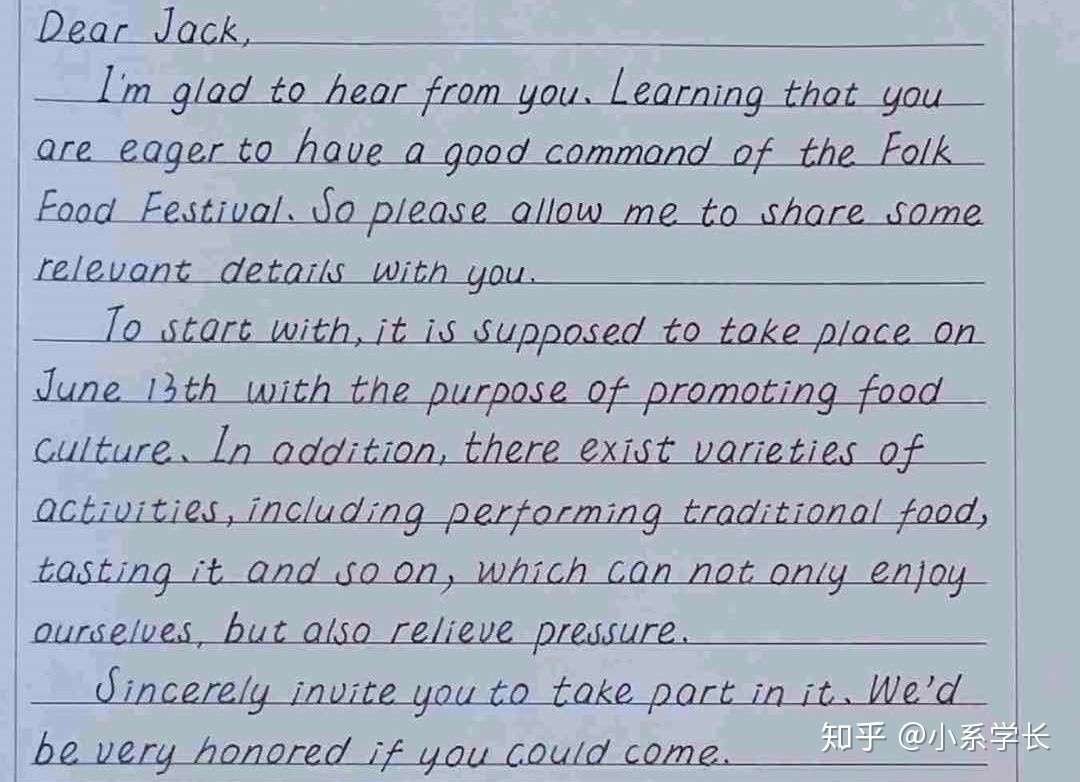 Dear Jack,
I'm glad to hear from you. Learning that you
are eager to have a good command of the Folk
Food Festival. So please allow me to share some
relevant details with you.
To start with, it is supposed to take place on
June 13th with the purpose of promoting food
culture. In addition, there exist varieties of
activities, including performing traditional food,
tasting it and so on, which can not only enjoy
ourselves, but also relieve pressure.
Sincerely invite you to take part in it. We'd
be very honored if you could come.
知乎 @小系学长